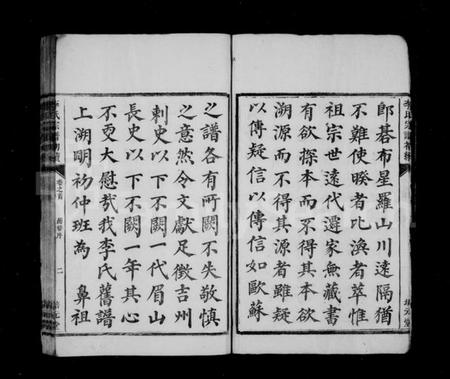 郎碁布星羅山川遠隔猶
不難使暌者比渙者萃惟
祖宗世遠代遷家無藏書
有欲探本而不得其本欲
溯源而不得其源者雖疑
以傳疑信以傳信如歐蘇
之譜各有所闕不失敬慎
之意然令文獻足徵吉州
刺史以下不闕一代眉山
長史以下不闕一年其心
不更大慰哉我李氏舊譜
上溯明初仲班為 鼻祖
卷之首
二